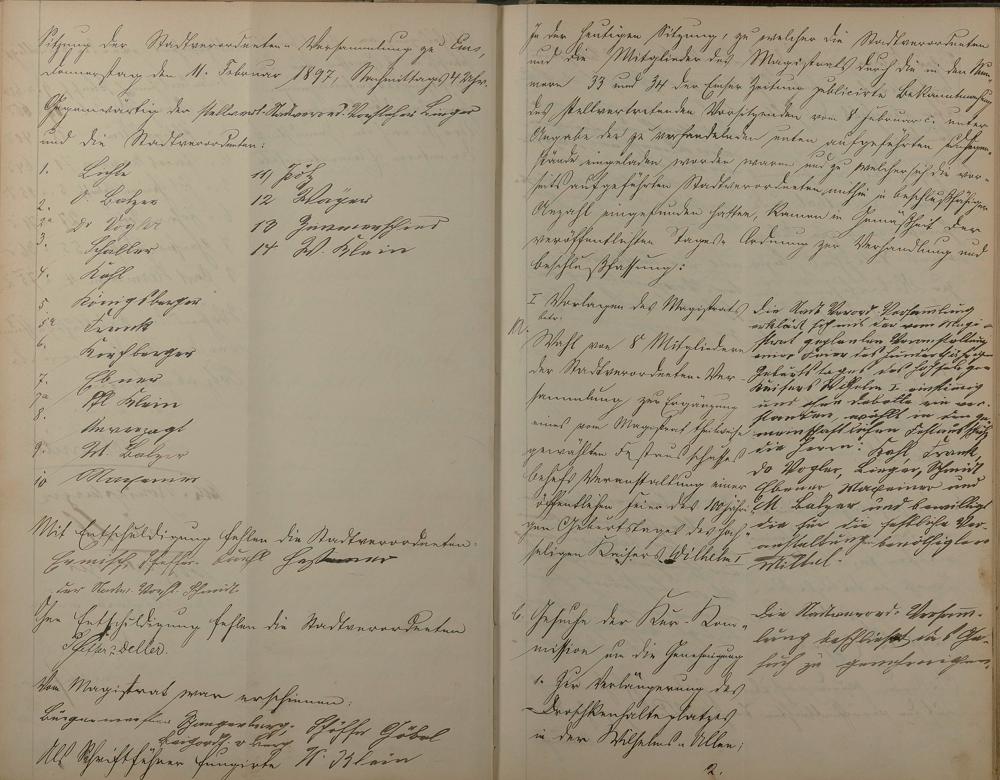 Sitzung der Stadtverordneten-Versammlung zu Ems,
Donnerstag den 11. Februar 1897, Nachmittags 4 Uhr.
Gegenwärtig der stellvertr. Stadtverord. Vorsteher Linger
und die Stadtverordneten:
1.
2. Balzer
2a Dr Vogler
3. Schaller
4. Kahl
5 Königsberger
5a Franck
6. Kirchberger
7. Ebner
7a Phl Klein
8. Unverzagt
9. M. Balzer
10
11)
12
13
14 W. Klein
Mit Entschuldigung fehlen die Stadtverordneten:
der Stadtv. Vorst. Schmitt
Ohne Entschuldigung fehlen die Stadtverordneten
Vom Magistrat war erschienen:
Bürgermeister Spangenberg, Schöffe Göbel
Als Schriftführer fungirte W. Klein
In der heutigen Sitzung, zu welcher die Stadtverordneten
und die Mitglieder des Magistrats durch die in den Num-
mern 33 und 34 der Emser Zeitung publicirte Bekanntmachung
des stellvertretenden Vorsitzenden vom 8. Februar c. unter
Angabe der zu verhandelnden unten aufgeführten Gegen-
stände eingeladen worden waren und zu welcher sich die vor-
seits aufgeführten Stadtverordneten, mithin in beschlußfähiger
Anzahl eingefunden hatten, kamen in Gemäßheit der
veröffentlichten Tages-Ordnung zur Verhandlung und
Beschlußfassung:
I Vorlagen des Magistrats
betr.
a. Wahl von 8 Mitgliedern
der Stadtverordneten-Ver-
sammlung zur Ergänzung
eines vom Magistrat theilweise
gewählten Festausschusses
behufs Veranstaltung einer
öffentlichen Feier des 100jähri-
gen Geburtstages des hoch-
seligen Kaisers Wilhelm I
Die Stadt Verord. Versammlung
erklärt sich mit der vom Magi-
strat geplanten Veranstaltung
einer Feier des hundertjährigen
Geburtstages des hochseligen
Kaisers Wilhelm I einstimmig
und ohne Debatte ein ver-
standen, wählt in den ge-
meinschaftlichen Festausschuß
die Herrn: Kahl, Frank,
Dr Vogler, Linger, Schmitt
Ebner, und
M. Balzer und bewilligt
die für die festliche Ver-
anstaltung benöthigten
Mittel.
b. Gesuche der Kur-Kom-
mission um die Genehmigung
1. Zur Verlängerung des
Droschkenhalteplatzes
in der Wilhelms-Allee;
Die Stadtverord. Versamm-
lung beschließt, das Ge-
such zu genehmigen.
2.